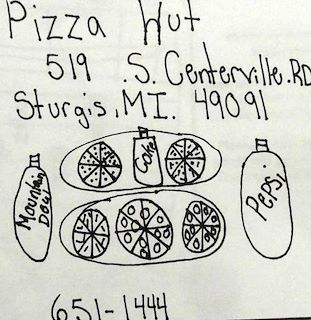 Pizza Hut
519 .S. Centerville.RD
Sturgis,MI. 49091
Mountain Dew
Coke
Pepsi
651-1444